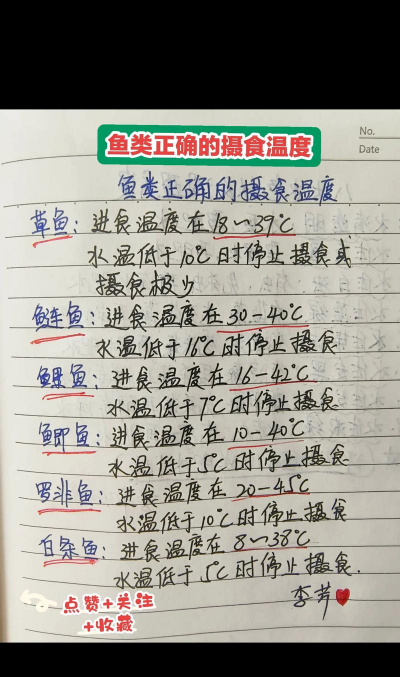 鱼类正确的摄食温度
No.
Date
鱼类正确的摄食温度
草鱼：进食温度在18～39℃
水温低于10℃时停止摄食或
摄食极少
鲢鱼：进食温度在30－40℃
水温低于16℃时停止摄食
鲤鱼：进食温度在16－42℃
水温低于7℃时停止摄食
鲫鱼：进食温度在10－40℃
水温低于5℃时停止摄食
罗非鱼：进食温度在20－45℃
水温低于10℃时停止摄食
白条鱼：进食温度在8～38℃
水温低于5℃时停止摄食.
点赞+关注
+收藏